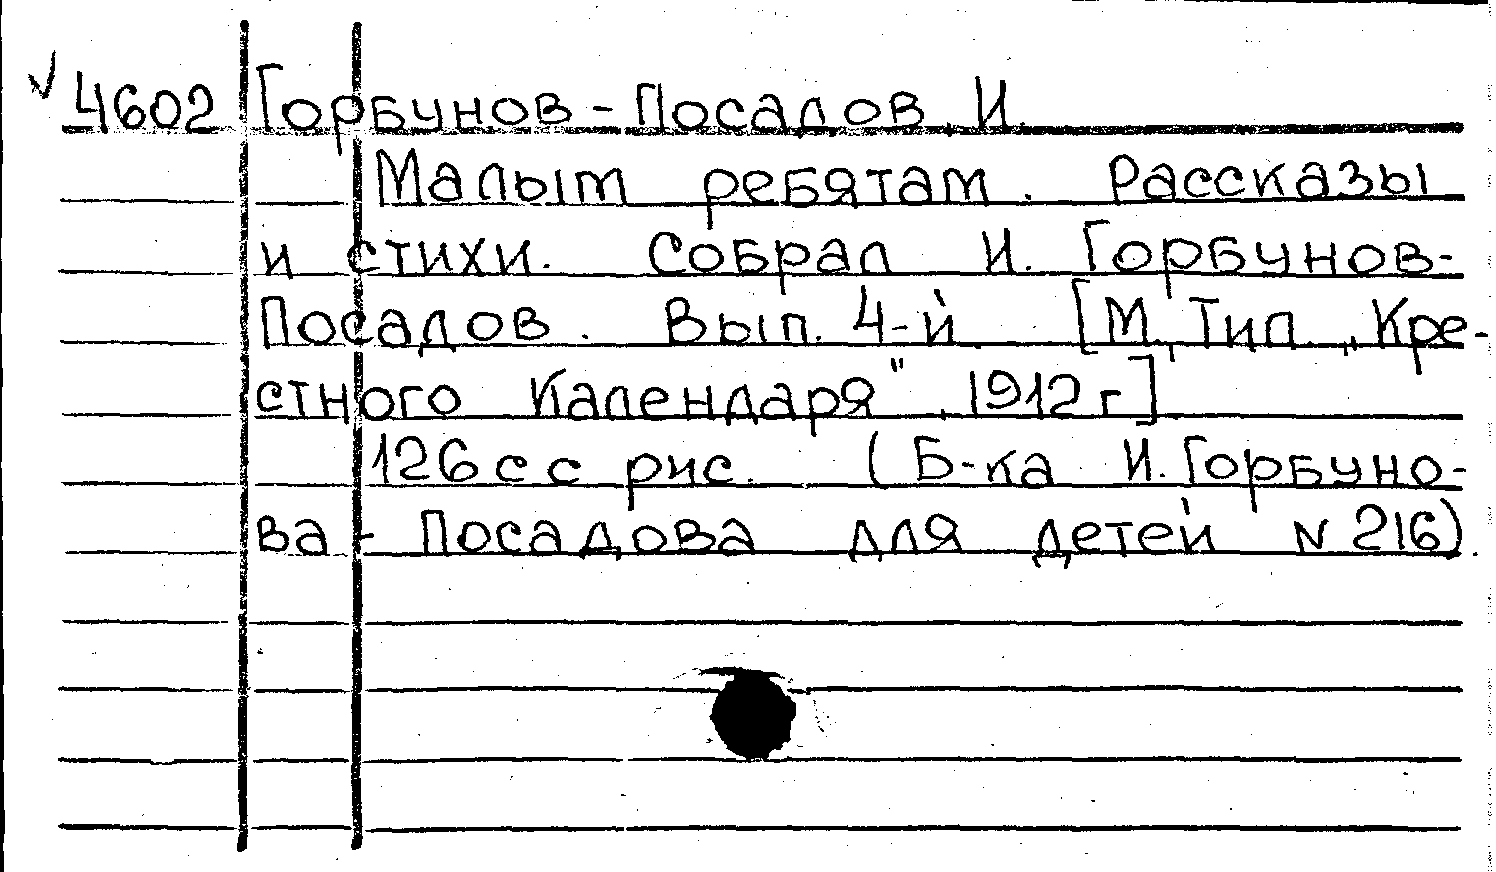 √ 4602 Горбунов-Посадов, И.
Малым ребятам. Рассказы
и стихи. Собрал И. Горбунов-
Посадов. Вып. 4-й. [М, Тип. „Кре-
стного календаря", 1912 г]
126 с с рис. (Б-ка И. Горбуно-
ва-Посадова для детей N 216).